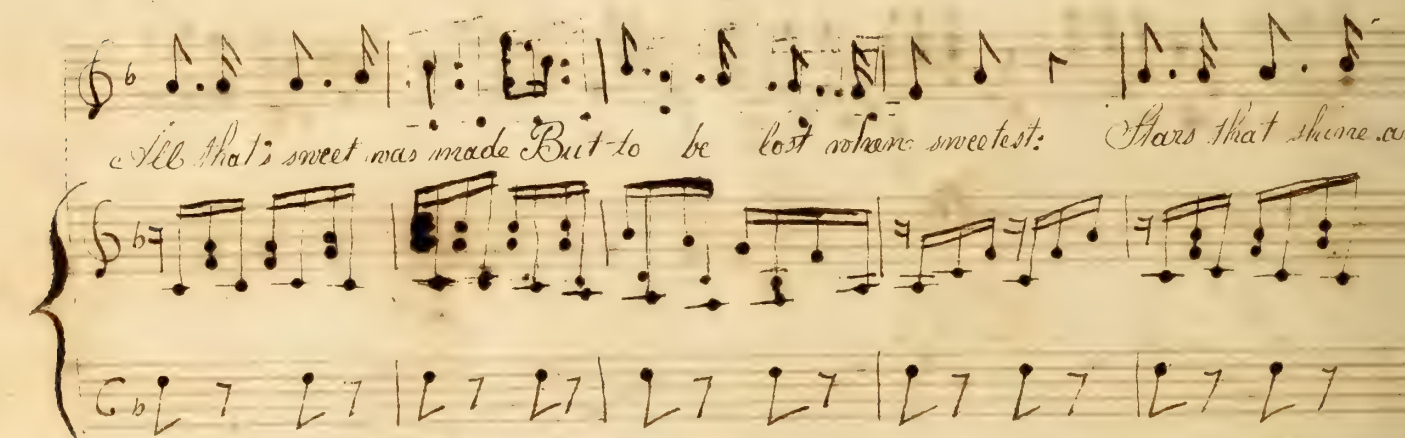 All that's sweet was made But to be lost when sweetest: Stars that shine a